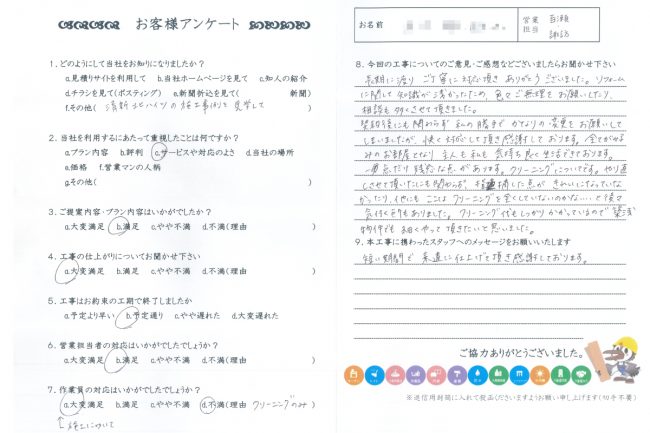 お客様アンケート
1．どのようにして当社をお知りになりましたか？
a.見積りサイトを利用して b.当社ホームページを見て c.知人の紹介
d.チラシを見て(ポスティング) e.新聞折込を見て( 新聞)
f.その他( 清新北ハイツの施工事例を見学して )
2．当社を利用するにあたって重視したことは何ですか？
a.プラン内容 b.評判 c.サービスや対応のよさ d.当社の場所
e.価格 f.営業マンの人柄
g.その他( )
3．ご提案内容・プラン内容はいかがでしたか？
a.大変満足 b.満足 c.やや不満 d.不満(理由 )
4．工事の仕上がりについてお聞かせ下さい
a.大変満足 b.満足 c.やや不満 d.不満(理由 )
5．工事はお約束の工期で終了しましたか
a.予定より早い b.予定通り c.やや遅れた d.大変遅れた
6．営業担当者の対応はいかがでしたでしょうか？
a.大変満足 b.満足 c.やや不満 d.不満(理由 )
7．作業員の対応はいかがでしたでしょうか？
a.大変満足 b.満足 c.やや不満 d.不満(理由 クリーニングのみ )
↑施工について
お名前
営業
担当
諏訪
8．今回の工事についてのご意見・ご感想などございましたらお聞かせ下さい
長期に渡り ご丁寧に対応頂き ありがとうございました。リフォーム
に関して知識が浅かったため、色々ご無理をお願いしたり、
相談も多くさせて頂きました。
契約後にも関わらず 私の勝手で かなりの変更をお願いして
しまいましたが、快く対応して頂き感謝しております。全てが好
みのお部屋となり 主人も私も 気持ち良く生活できております。
一点だけ残念な点があります。クリーニングについてです。やり直し
させて頂いたにも関わらず、指摘した点がきれいになっていな
かったり、他にもここはクリーニングを全くしていないのかな…と後々
気付く所もありました。クリーニング代もしっかりかかっているので
物件でも細くやって頂きたいと思いました。
9．本工事に携わったスタッフへのメッセージをお願いいたします
短い期間で 素適に仕上げて頂き感謝しております。
ご協力ありがとうございました。
※返信用封筒に入れて投函くださいますようお願い申し上げます(切手不要)